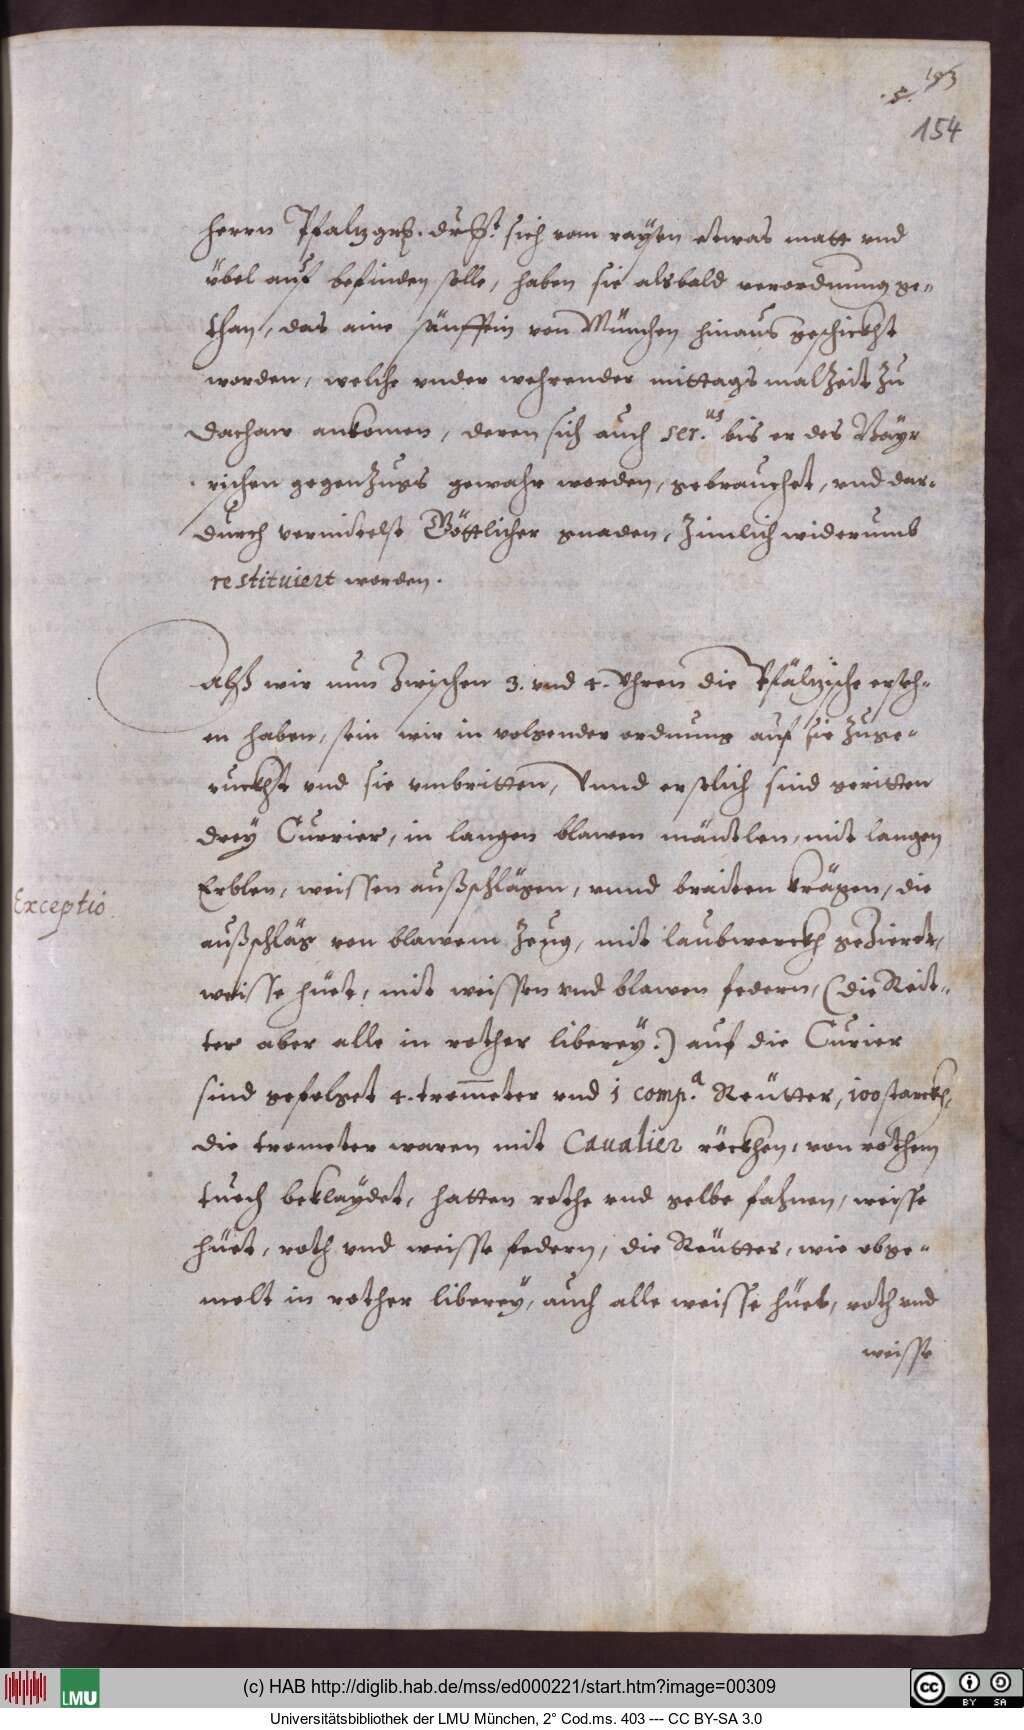 193
.5.
154
herrn Pfaltzgrf. drht. sich vom raysen etwas matt vnd
übel auf befinden solle, haben sie alsbald verordnung ge-
than, das aine sänfften von München hinaus geschickht
worden, welche vnder wehrender mittags malzeit zu
Dachaw ankomen, deren sich auch ser.us bis er des Bayr
rischen gegenzugs gewahr worden, gebrauchet, vnd dar-
durch vermitelst Göttlicher gnaden, zimlich widerumb
restituiert worden.
Alß wir nun zwischen 3. vnd 4. Vhren die Pfältzische erseh-
en haben, sein wir in volgender ordnung auf sie zuge-
ruckht vnd sie vmbritten, Vnnd erstlich sind geritten
drey Currier, in langen blawen mäntlen, mit langen
Erblen, weissen außschlägen, vnnd braiten krägen, die
Exceptio.
außschläg von blawem zeug, mit laubwerckh gezieret,
weisse hüete, mit weissen vnd blawen federn, (die Reit-
ter aber alle in rother liberey.) auf die Curier
sind gefolget 4. trommeter vnd 1 comp.a Reütter, 100 starckh,
die trometer waren mit Caualier röckhen, von rothem
tuech beklaydet, hatten rothe vnd gelbe fahnen, weisse
hüet, roth vnd weisse federn, die Reütter, wie obge-
melt in rother liberey, auch alle weisse hüet, roth vnd
weisse
LMU
(c) HAB http://diglib.hab.de/mss/ed000221/start.htm?image=00309
cc BY SA
Universitätsbibliothek der LMU München, 2° Cod.ms. 403 --- CC BY-SA 3.0